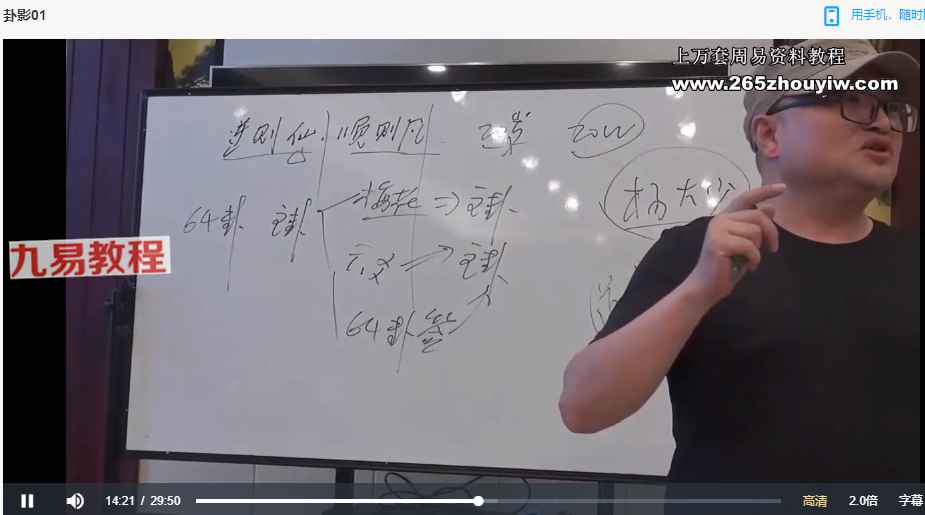 卦影01
用手机、随时
上万套周易资料教程
www.265zhouyiw.com
逆则仙, 顺则凡
64卦 主卦
梅花 => 主卦
六爻 => 主卦
64卦签
九易教程
14:21 / 29:50
高清
2.0倍
字幕